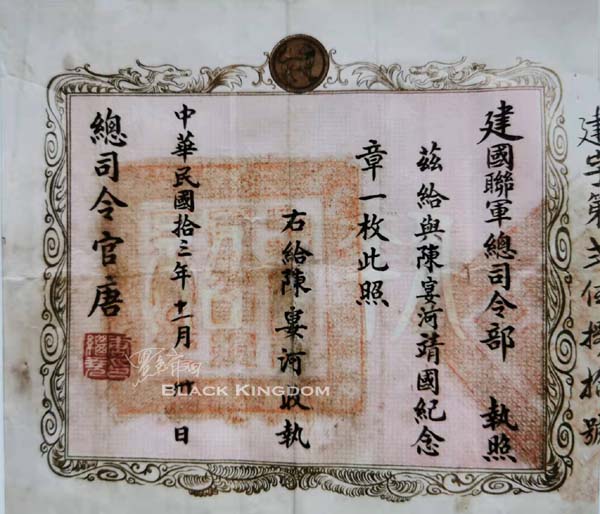 建字第 佰捌拾號
建國聯軍總司令部 執照
茲給與陳宴河靖國紀念
章一枚此照
右給陳宴河收執
中華民國拾三年十一月 日
總司令官唐
BLACK KINGDOM